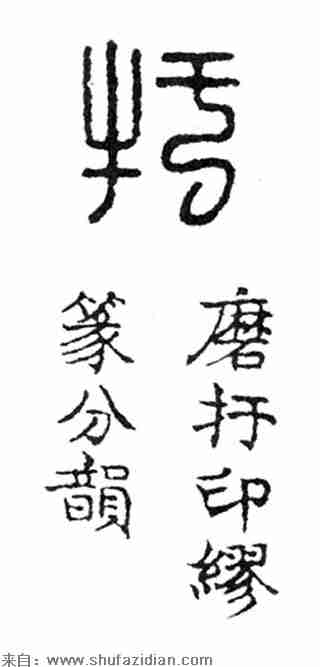 扜
磨扜印繆
篆分韻
来自：www.shufazidian.com